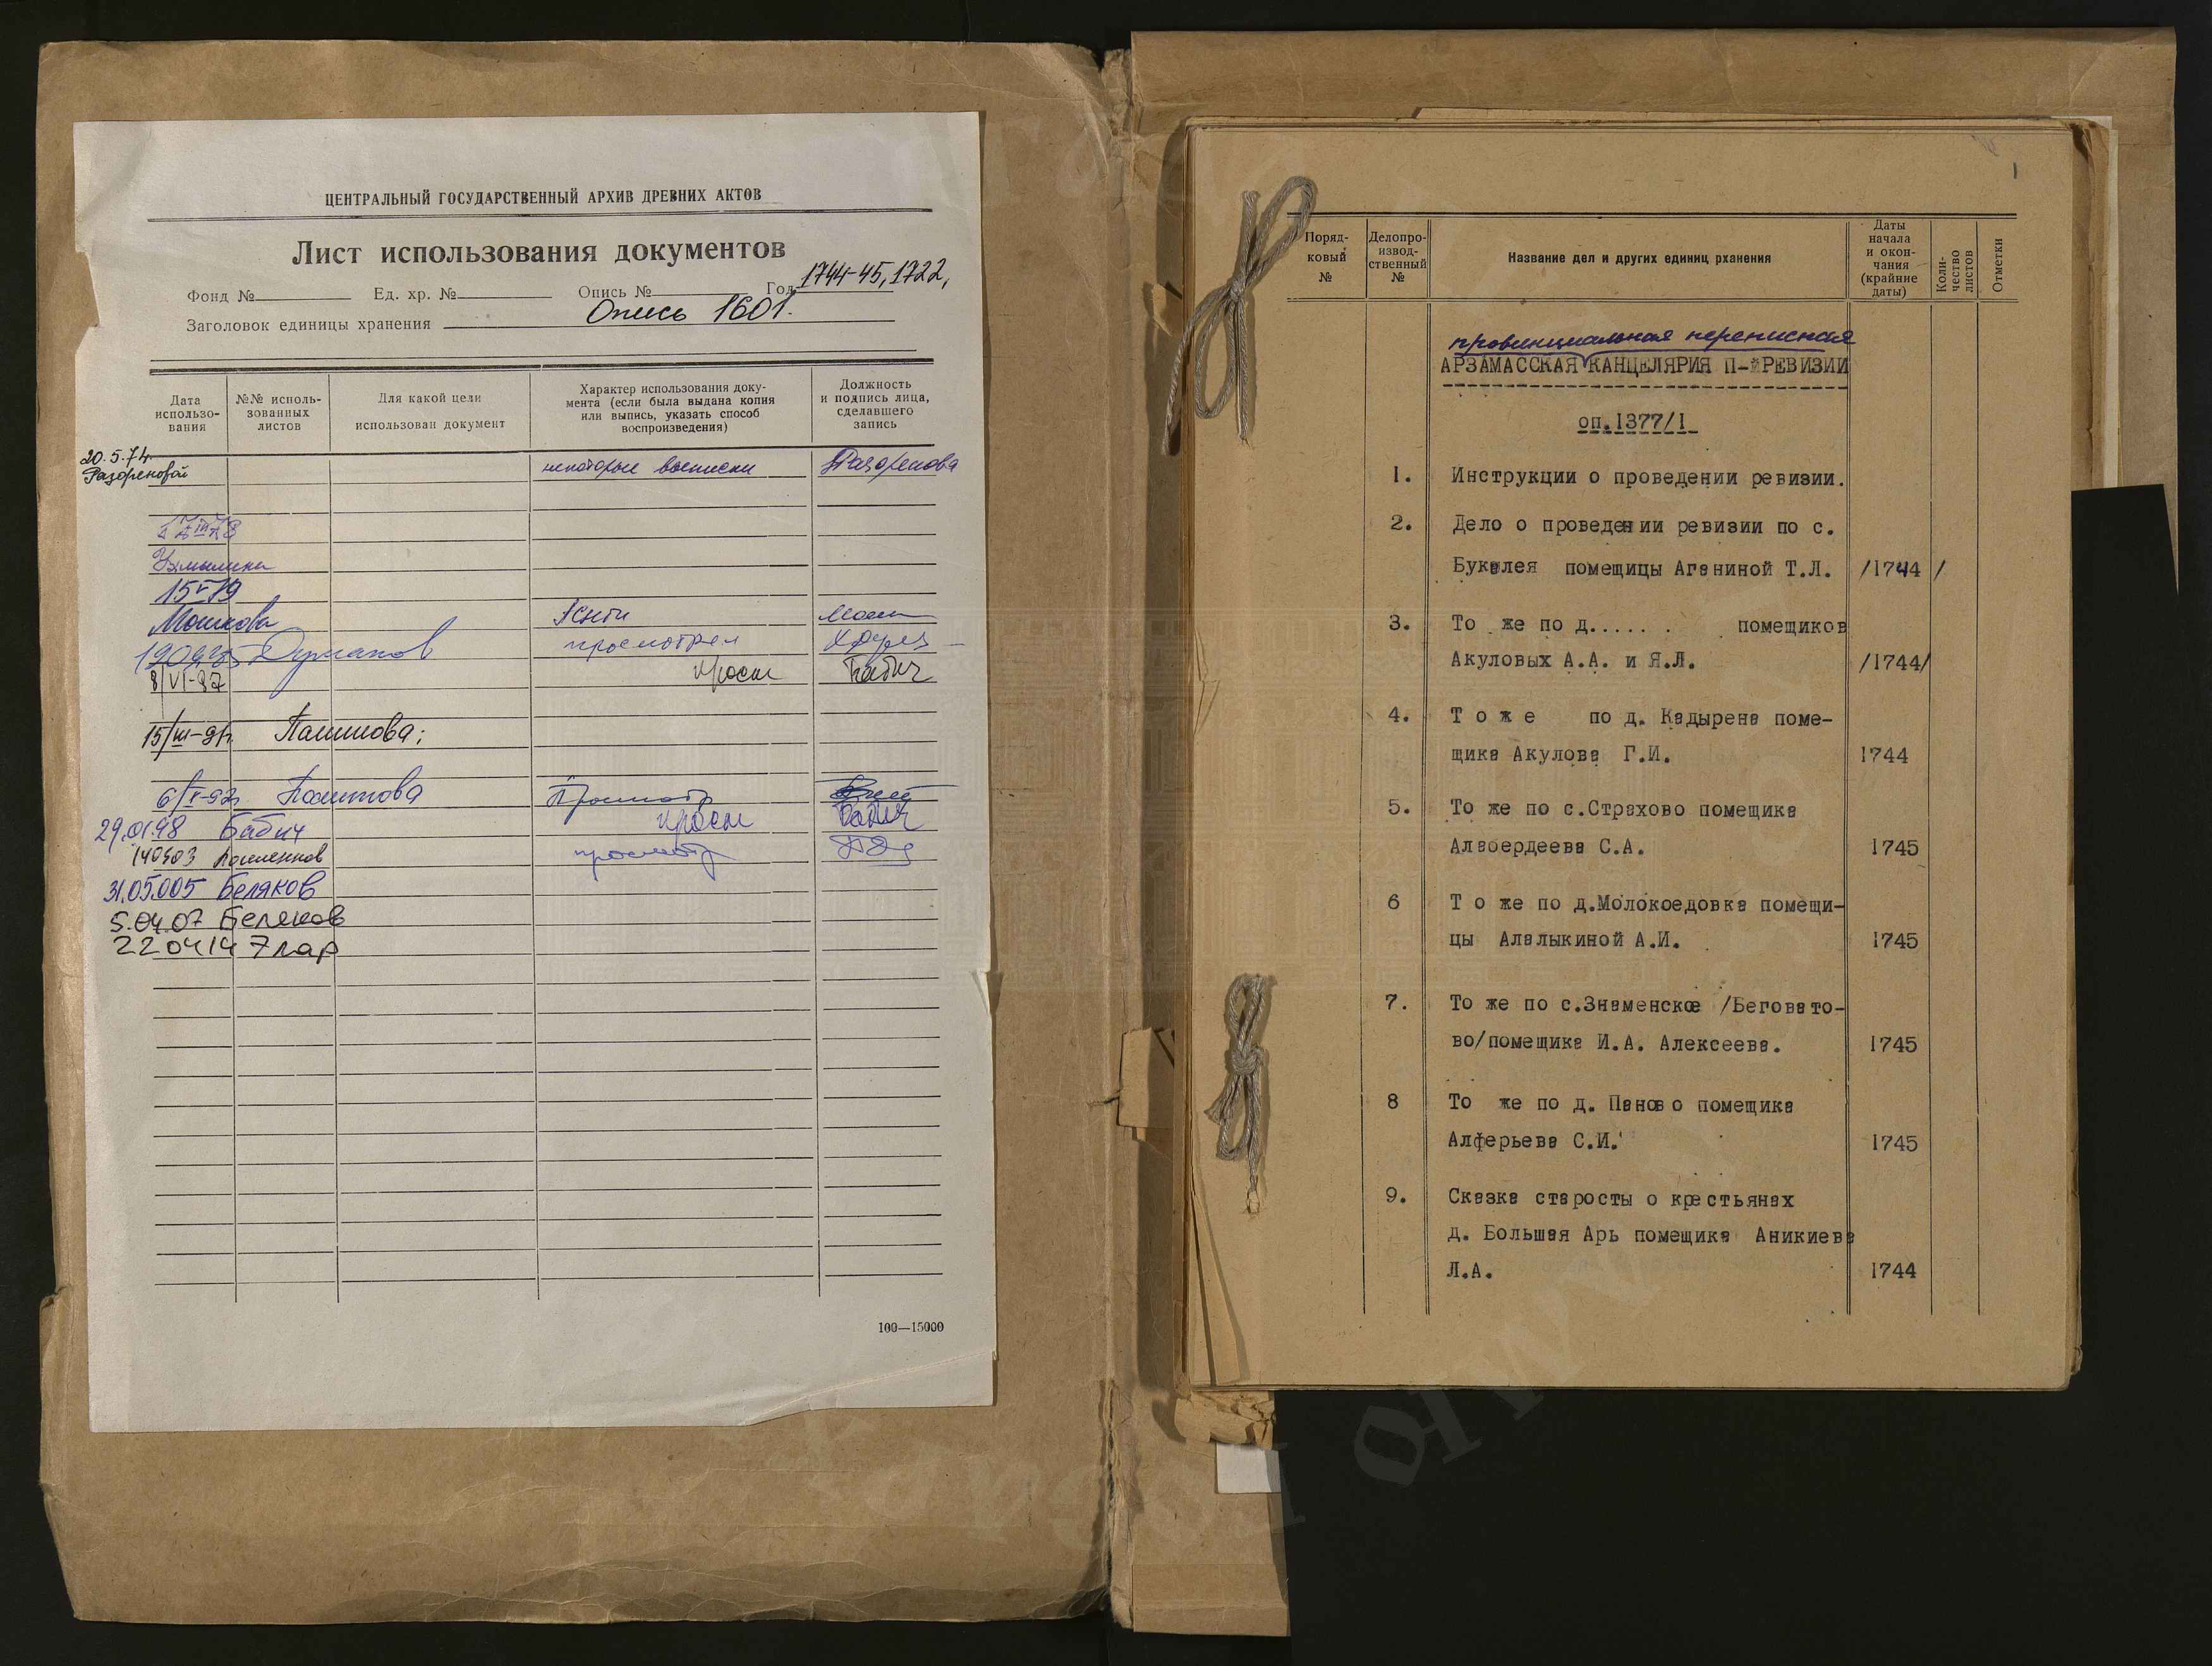 ЦЕНТРАЛЬНЫЙ ГОСУДАРСТВЕННЫЙ АРХИВ ДРЕВНИХ АКТОВ
Лист использования документов
1744-45, 1722,
Фонд № Ед. хр. № Опись № Год
Заголовок единицы хранения Опись 1601.
Дата использо-вания
№№ исполь-зованных листов
Для какой цели использован документ
Характер использования доку-мента (если была выдана копия или выпись, указать способ воспроизведения)
Должность и подпись лица, сделавшего запись
20.5.74.
Разореновой некоторые выписки Разоренова
15 V 79
Мошкова
просмотрел
8/VI-87 Бабич
15/III-91г. Пашкова;
просмотр
29.01.98 Бабич Бабич
просмотр
31.05.005 Беляков
5.04.07 Беляков
220414
100—15000
1
Поряд-ковый №
Делопро-извод-ственный №
Название дел и других единиц рханения
Даты начала и окон-чания (крайние даты)
Коли-чество листов
Отметки
провинциальная переписная
АРЗАМАССКАЯ КАНЦЕЛЯРИЯ П-Й РЕВИЗИИ
оп.1377/1
1. Инструкции о проведении ревизии.
2. Дело о проведении ревизии по с.
Букалея помещицы Аганиной Т.Л. /1744/
3. То же по д...... . помещиков
Акуловых А.А. и Я.Л. /1744/
4. Т о ж е по д. Кадырена поме-
щика Акулова Г.И. 1744
5. То же по с.Страхово помещика
Алабердеева С.А. 1745
6 Т о же по д.Молокоедовка помещи-
цы Алалыкиной А.И. 1745
7. То же по с.Знаменское /Беговато-
во/помещика И.А. Алексеева. 1745
8 То же по д. Паново помещика
Алферьева С.И. 1745
9. Сказка старосты о крестьянах
д. Большая Арь помещика Аникиева
Л.А. 1744